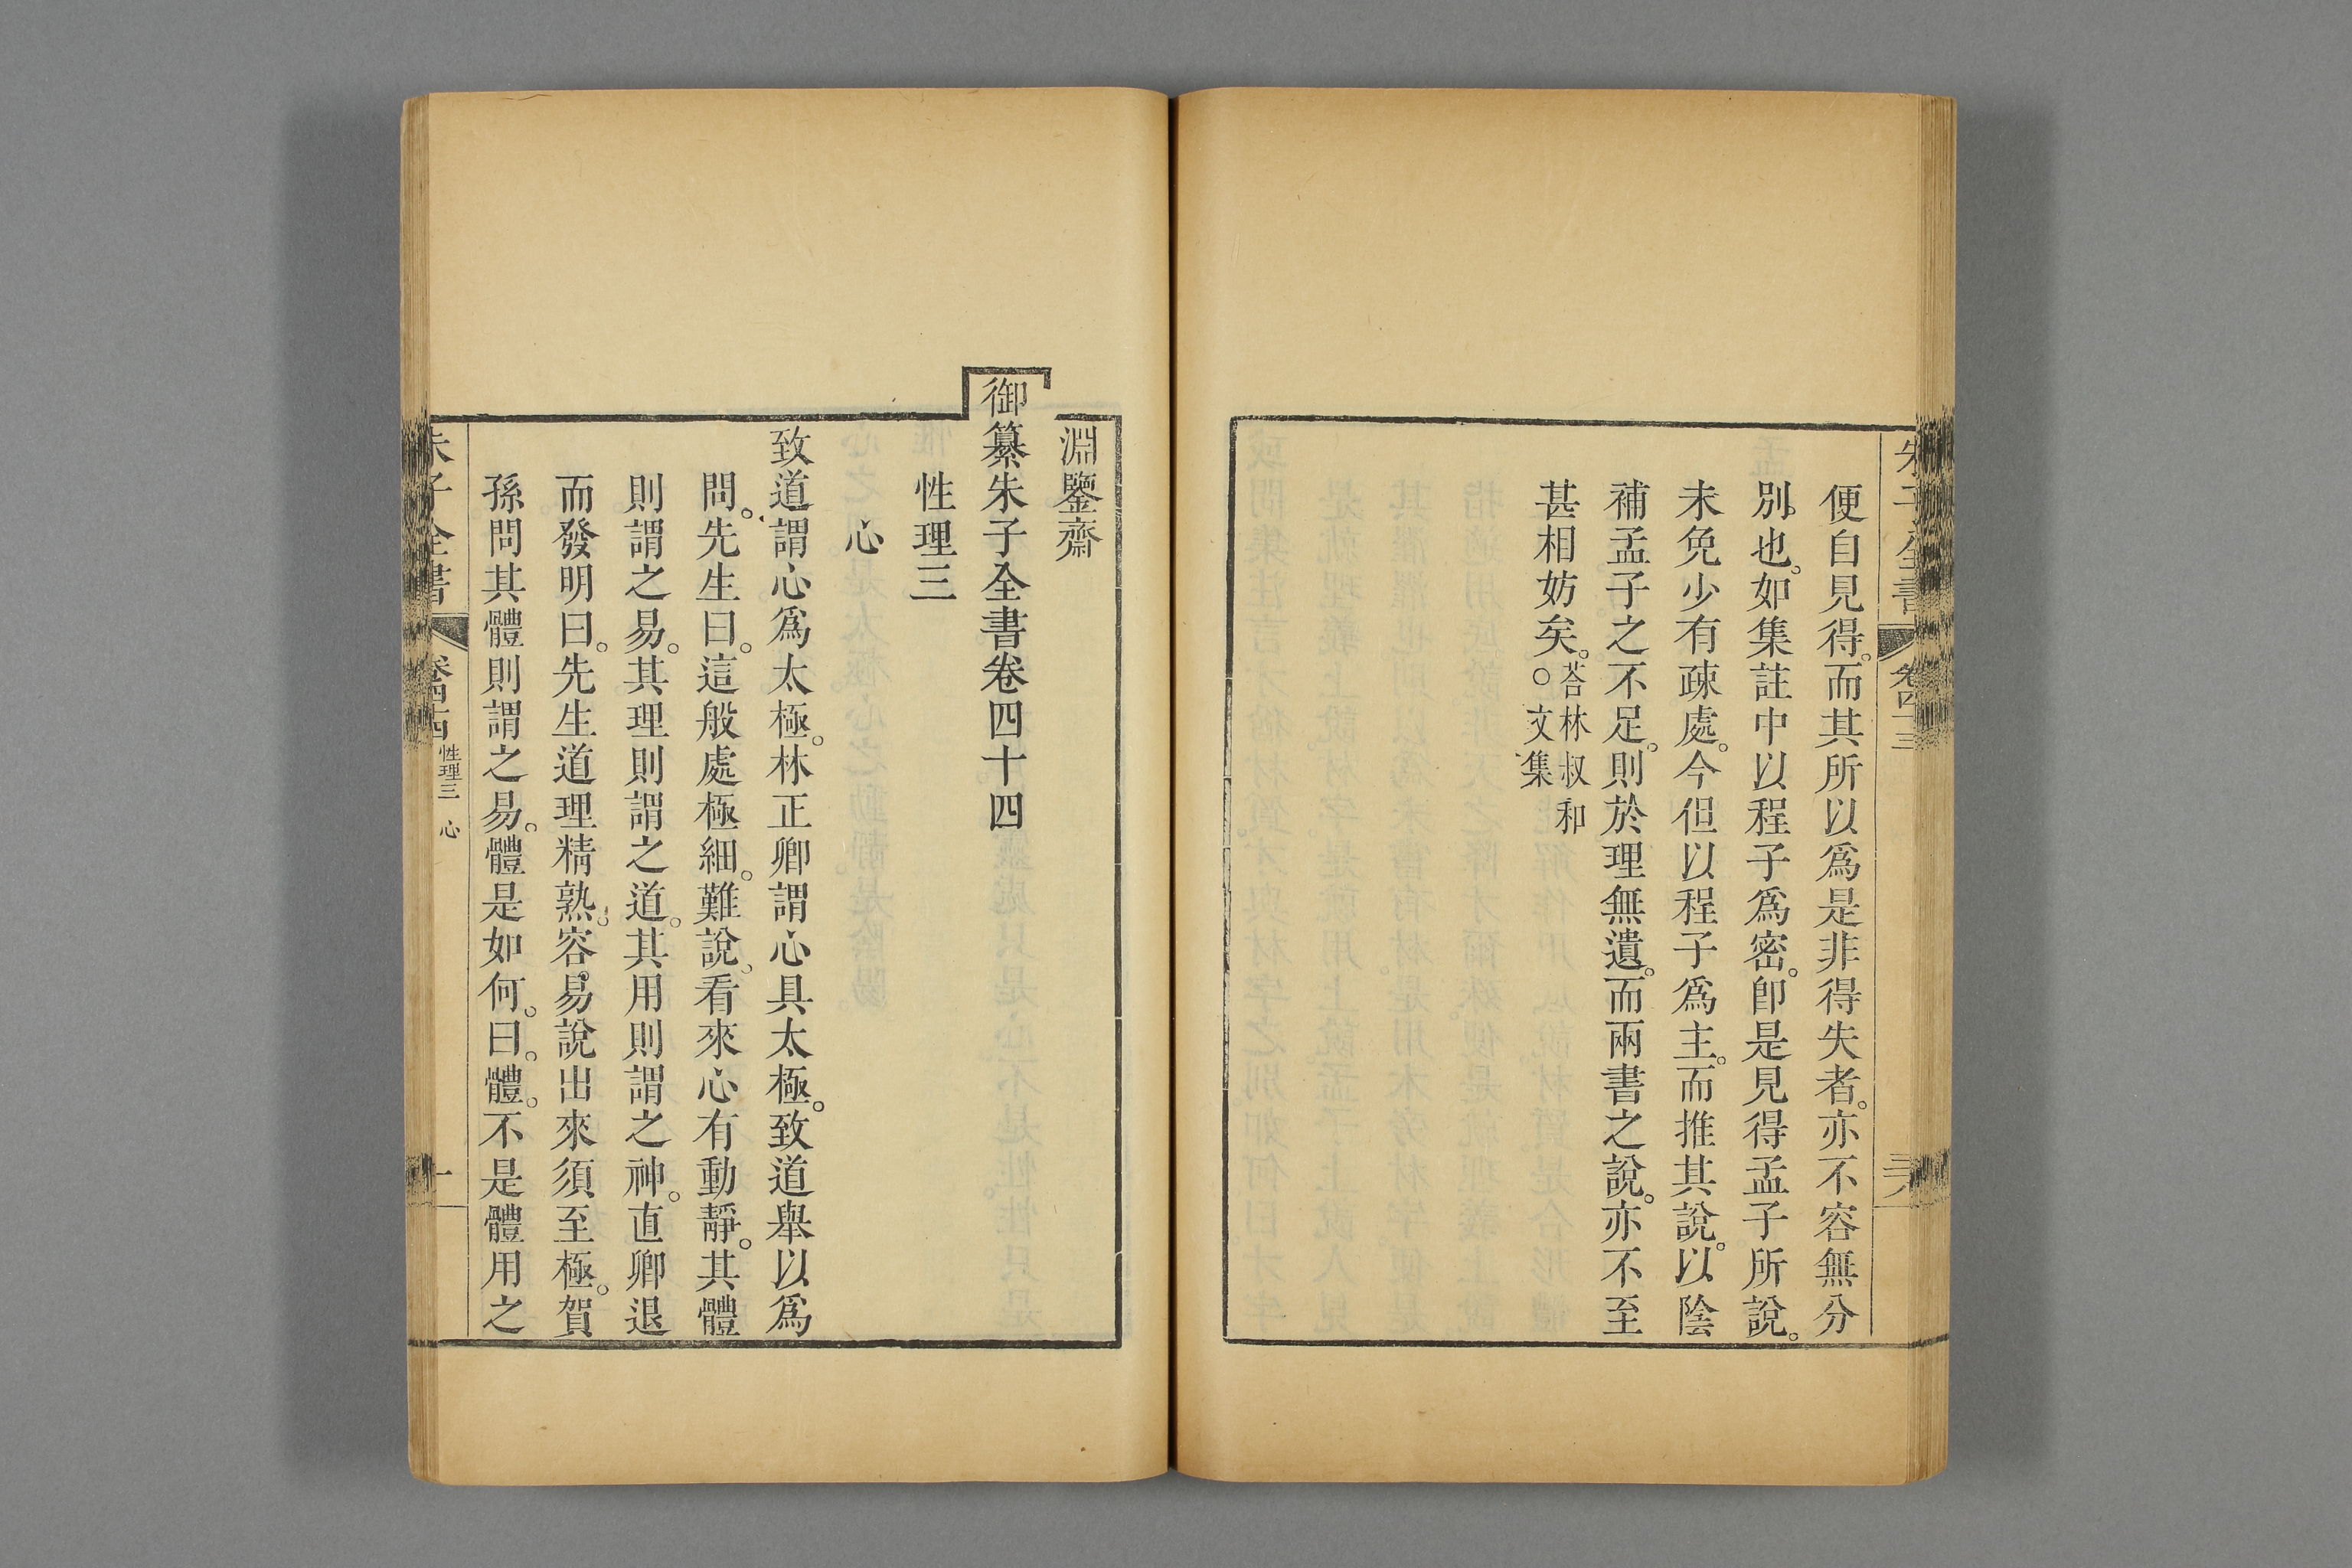 便自見得。而其所以爲是非得失者。亦不容無分
別也。如集註中以程子爲密。卽是見得孟子所說。
未免少有疎處。今但以程子爲主。而推其說。以陰
補孟子之不足。則於理無遺。而兩書之說。亦不至
甚相妨矣。○荅林叔和
文集
淵鑒齋
御纂朱子全書卷四十四
性理三
心
致道謂心爲太極。林正卿謂心具太極。致道舉以爲
問。先生曰。這般處極細。難說。看來心有動靜。其體
則謂之易。其理則謂之道。其用則謂之神。直卿退
而發明曰。先生道理精熟。容易說出來。須至極。賀
孫問其體則謂之易。體是如何。曰。體。不是體用之
朱子全書
卷四十四
性理三 心
一